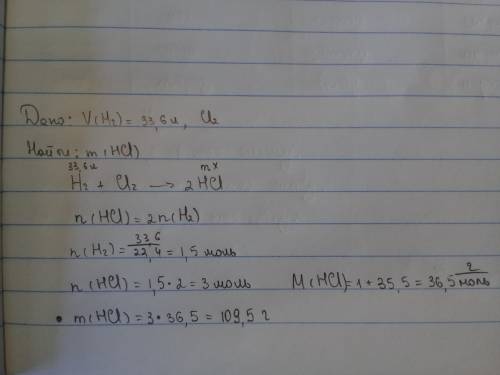 Дано: V(H₂) = 33,6 л, Cl₂
Найти: m(HCl)
33,6 л m x
H₂ + Cl₂ → 2HCl
n(HCl) = 2n(H₂)
n(H₂) = 33,6/22,4 = 1,5 моль
n(HCl) = 1,5 • 2 = 3 моль M(HCl) = 1 + 35,5 = 36,5 г/моль
• m(HCl) = 3 • 36,5 = 109,5 г